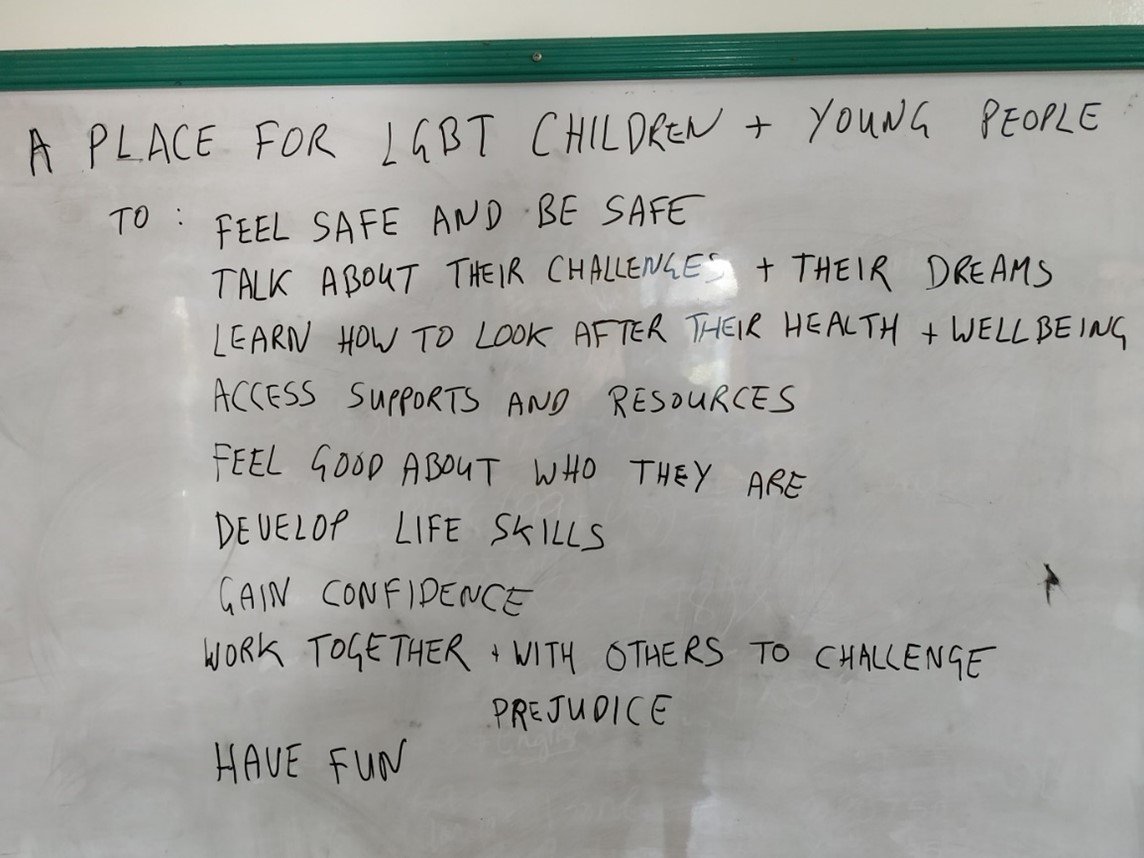 A PLACE FOR LGBT CHILDREN + YOUNG PEOPLE
TO : FEEL SAFE AND BE SAFE
TALK ABOUT THEIR CHALLENGES + THEIR DREAMS
LEARN HOW TO LOOK AFTER THEIR HEALTH + WELLBEING
ACCESS SUPPORTS AND RESOURCES
FEEL GOOD ABOUT WHO THEY ARE
DEVELOP LIFE SKILLS
GAIN CONFIDENCE
WORK TOGETHER + WITH OTHERS TO CHALLENGE
PREJUDICE
HAVE FUN